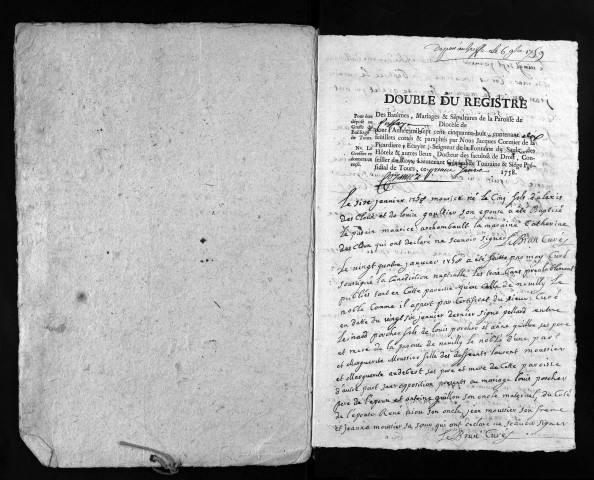 Deposé au Greffe le 6 9bre 1759
DOUBLE DU REGISTRE
Des Baptêmes, Mariages & Sépultures de la Paroisse de
Diocèse de
pour l'Année mil sept cens cinquante-huit, contenant
feuillets cottés & paraphés par Nous Jacques Cormier de la
Picardiere, Ecuyer, Seigneur de la Fontaine du
Hôtelz & autres lieux, Docteur des facultés de Droit, Con-
seiller du Roy, Lieutenant Général de Touraine & Siége Pré-
sidial de Tours, ce premier Janvier 1758.
Pour être
déposé au
Greffe du
Bailliage
de Tours.
Le six janvier 1758 maurice né le Cinq fils d'alexis
des Cloux et de louise gaultier son epouse a été Baptisé
Le parain maurice archambault la maraine Catherine
des Cloux qui ont declaré ne scavoir signer LeBrun Curé
Le vingt quatre janvier 1758 a été faitte par moy Curé
soussigné la benediction nuptialle les trois bans prealablement
publiés tant en Cette paroisse qu'en Celle de neuilly le
noble Comme il appert par Certificat du sieur Curé
en datte du vingt six janvier dernier signé entre
Leonard porcher fils de louis porcher et anne guillon ses pere
et mere de la paroisse de neuilly le noble d'une part
et Marguerite Moussier fille des deffunts laurent moussier
et Marguerite audebert ses pere et mere de Cette paroisse
d'autre part sans opposition presents au mariage louis porcher
pere de l'epoux et antoine guillon son oncle maternel, du Coté
de l'epouse René son oncle, jean moussier son frere
et jeanne moussier sa soeur qui ont declaré ne scavoir signer
LeBrun Curé